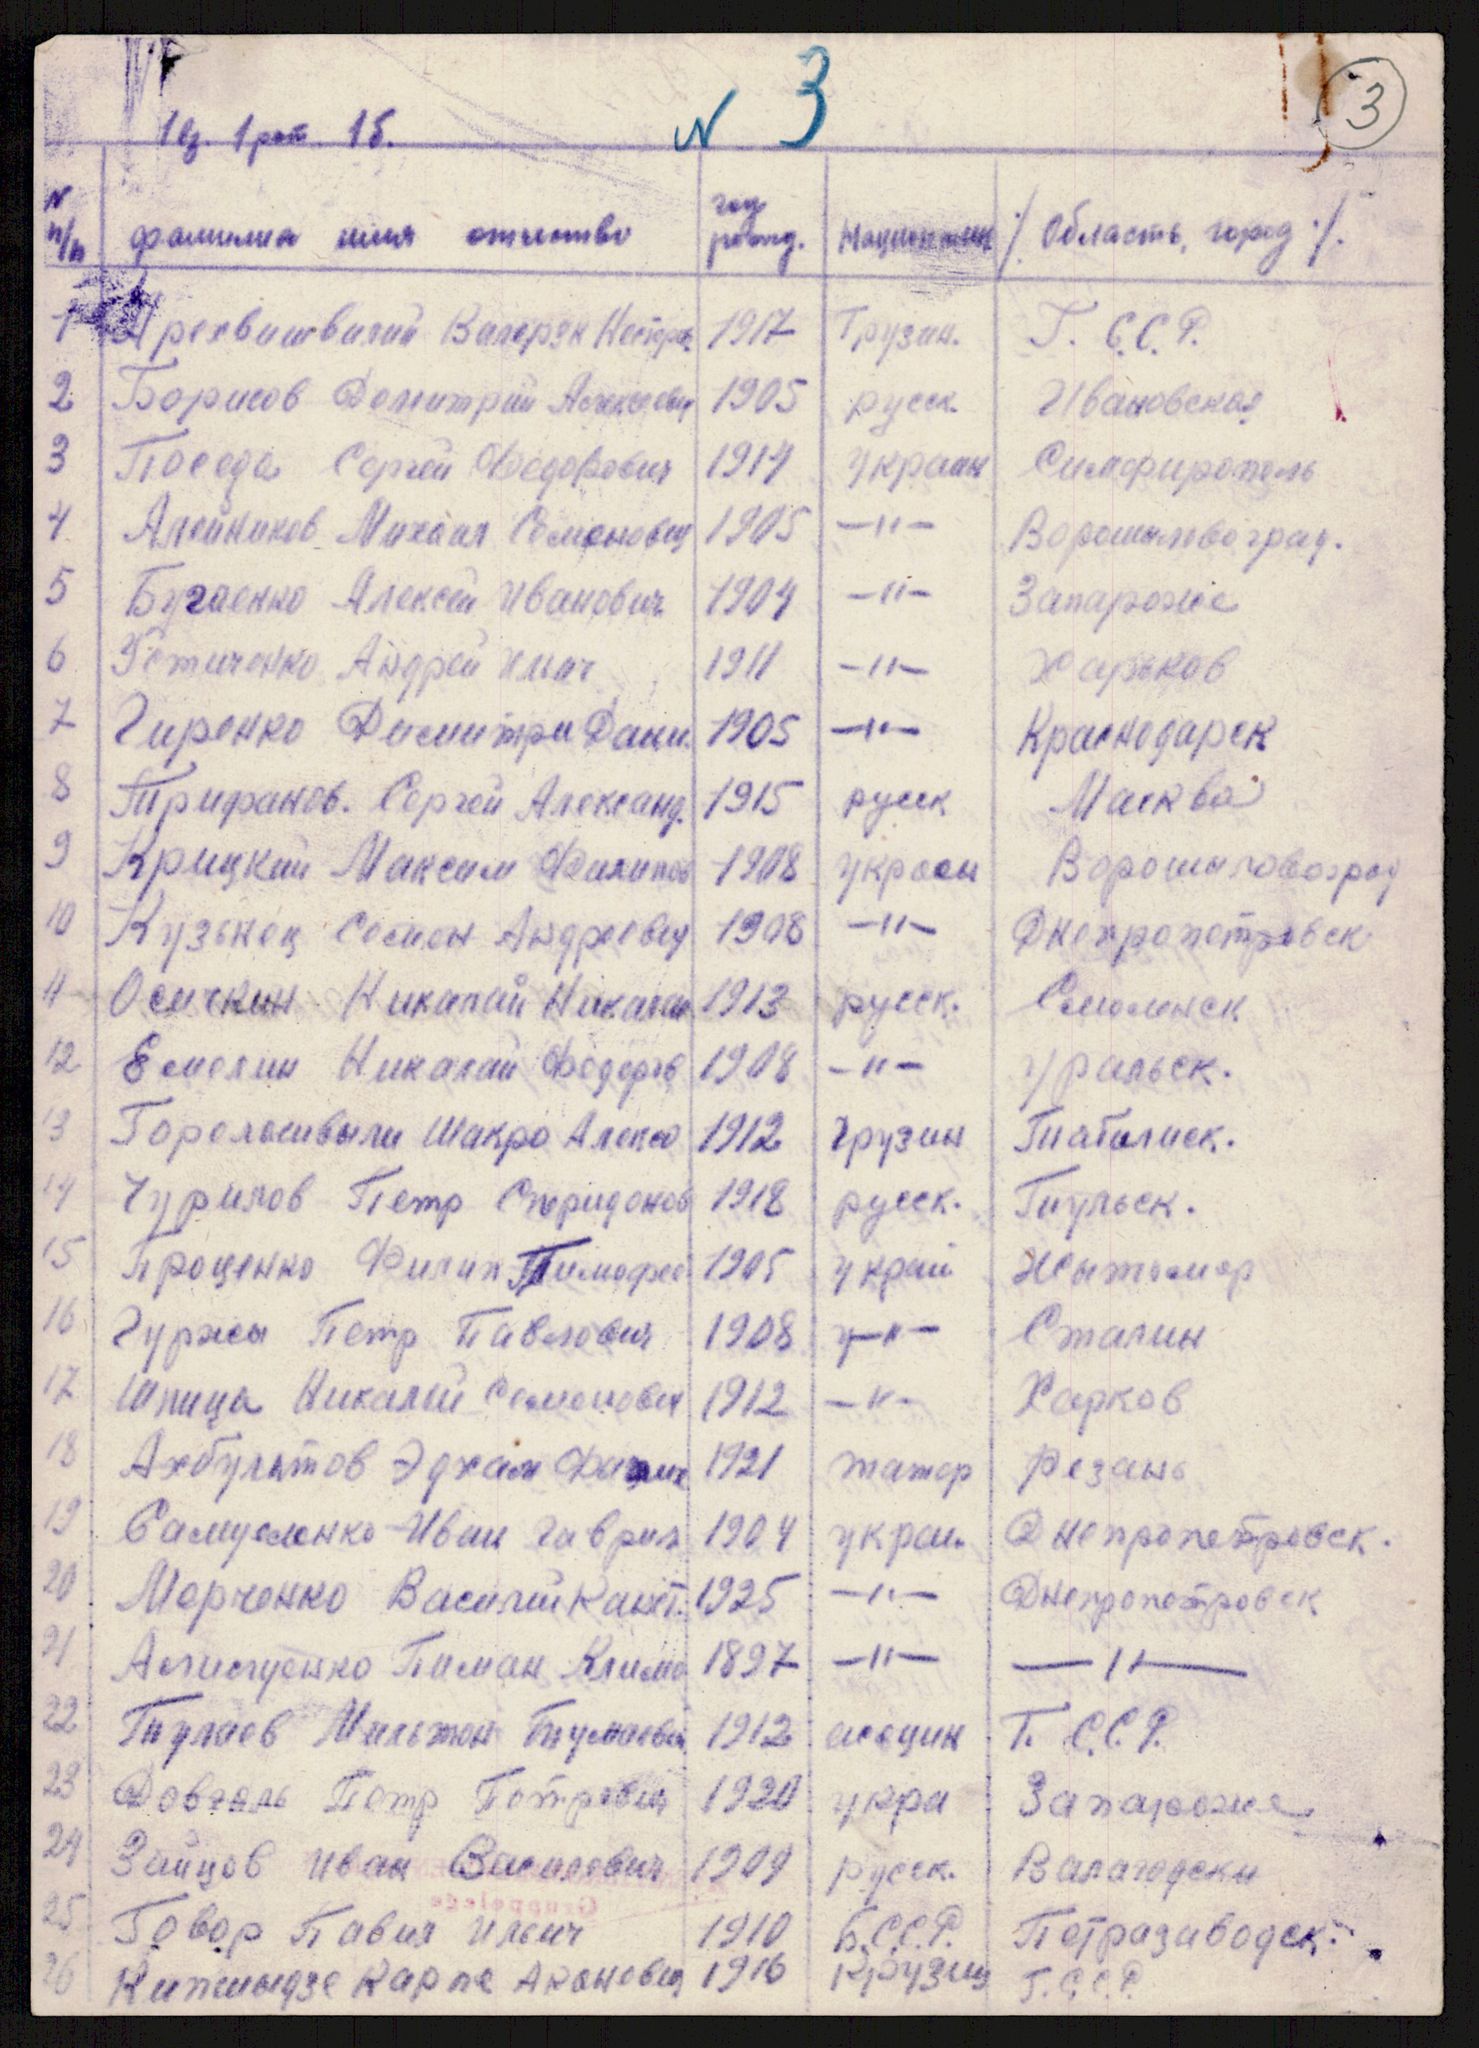 N 3
3
1 вз. 1 рот. 1 б.
N п/п фамилия имя отчество год рожд. Национ ./. Область, город ./.
1 Валерян Нестеро 1917 Грузин. Г. С.С.Р.
2 Борисов Демитрий Алексеевич 1905 русск. Ивановская
3 Поседа Сергей Федорович 1914 украин Симфирополь
4 Алейников Михаил Семенович 1905 —"— Ворошиловоград.
5 Бугаенко Алексей Иванович 1904 —"— Запароже
6 Устиченко Андрей Ильич 1911 —"— Харьков
7 Гиренко Димитри Дани. 1905 —"— Краснодарск
8 Трифанов. Сергей Александ. 1915 русск Масква
9 Крицкий Максим Филипов 1908 украин Ворошиловоград
10 Кузьнец Семен Андреевич 1908 —"— Днепропетровск
11 Осичкин Никалай Никалаи 1913 русск. Смоленск
12 Емелин Никалай Федоров 1908 —"— Уральск.
13 Шакро Алексо 1912 грузин
14 Чурилов Петр Спиридонов 1918 русск. Тульск.
15 Проценко Филип Тимофее 1905 украй Жытомор
16 Гуржы Петр Павлович 1908 у—"— Сталин
17 Шпица Никалай Семенович 1912 —"— Харков
18 Ахбулатов Эдхам 1921 татар Резань
19 Самусенко Иван Гаврил 1904 украи. Днепропетровск.
20 Марченко Василий Канст. 1925 —"— Днепропетровск
21 Климо 1897 —"— —"—
22 Тулаев Мильтон 1912 асецин Г. С.С.Р.
23 Довгаль Петр Петрович 1920 укра Запароже
24 Зайцов Иван Василович 1909 русск. Валагодски
25 Говор Павил Ильич 1910 Б.С.С.Р. Петразаводск.
26 Карпе 1916 Г.С.С.Р.